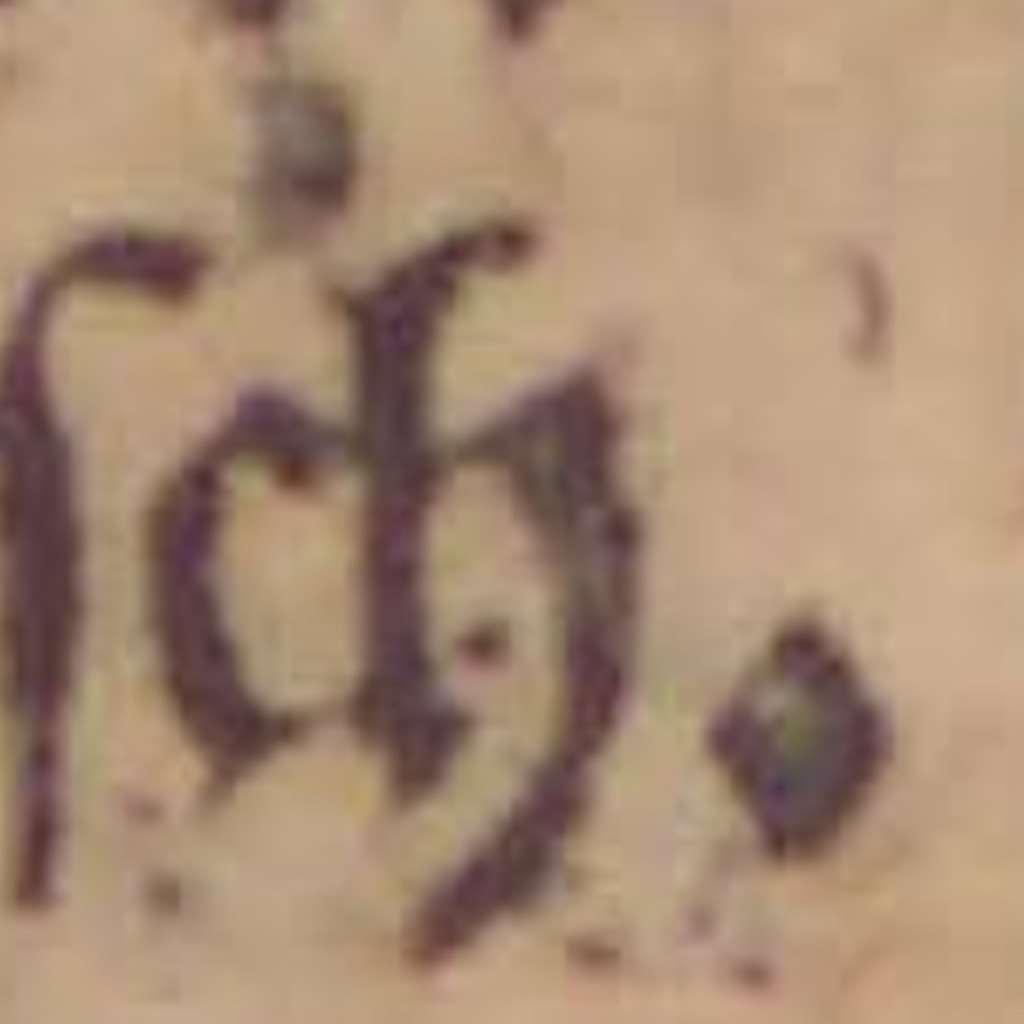 ſch.